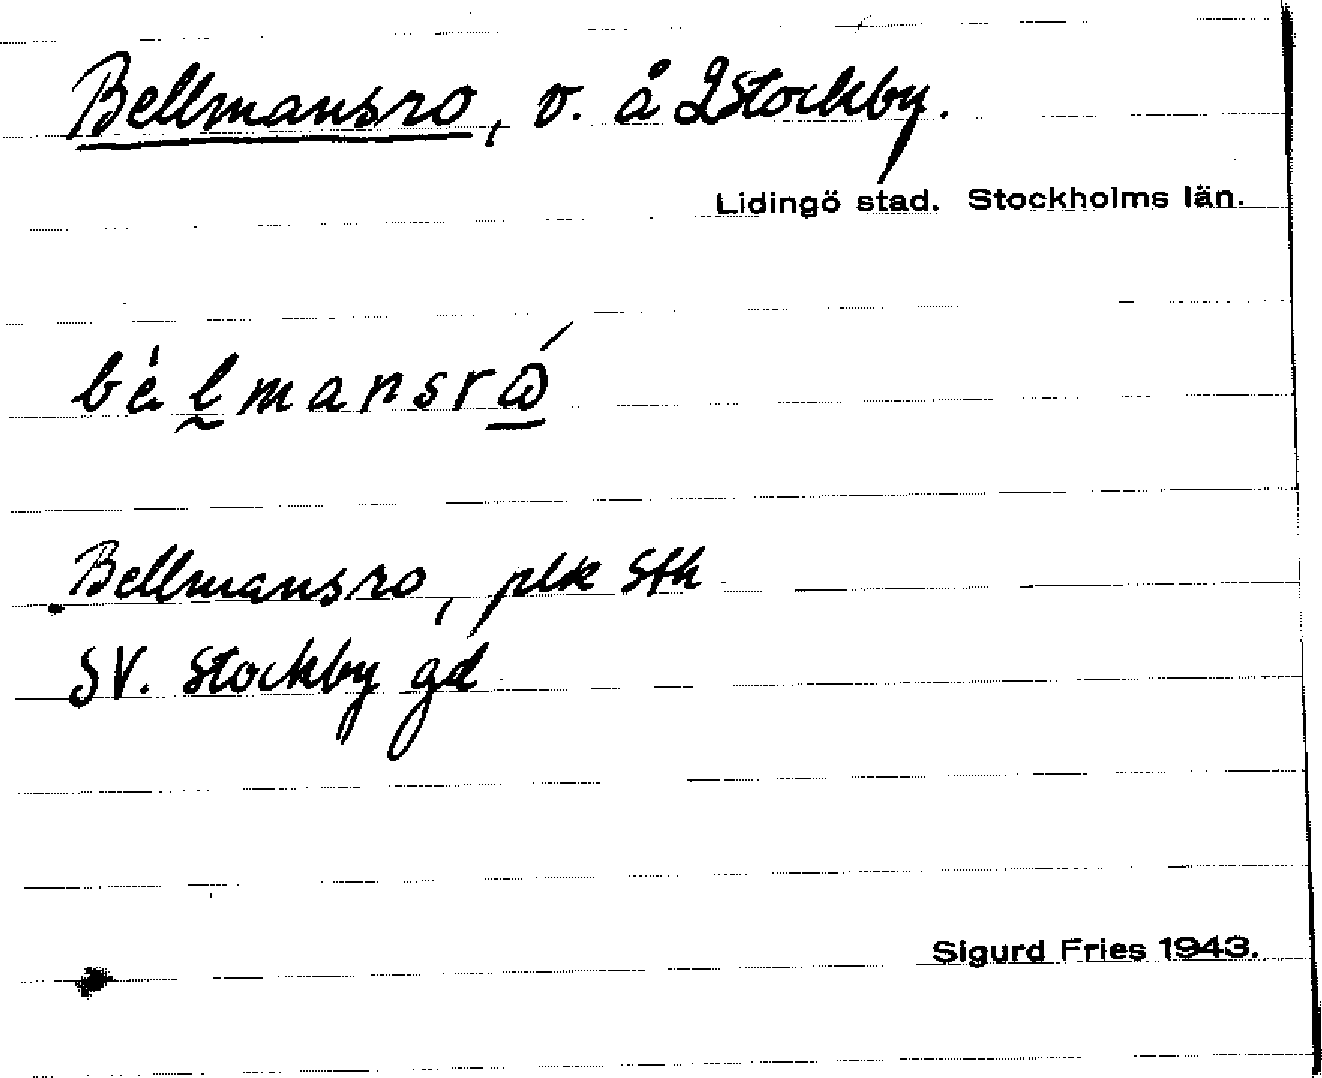 Bellmansro, v. å 2 Stockby.
Lidingö stad. Stockholms län.
Bellmansro, plk Sth
SV. Stockby gd
Sigurd Fries 1943.